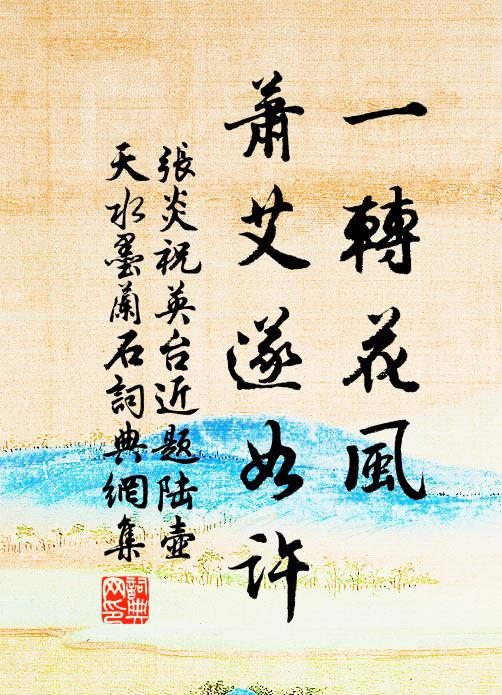 一轉花風
蕭艾遂如許
張炎祝英台近題陆壺
天水墨蘭石詞典網集
詞典网印